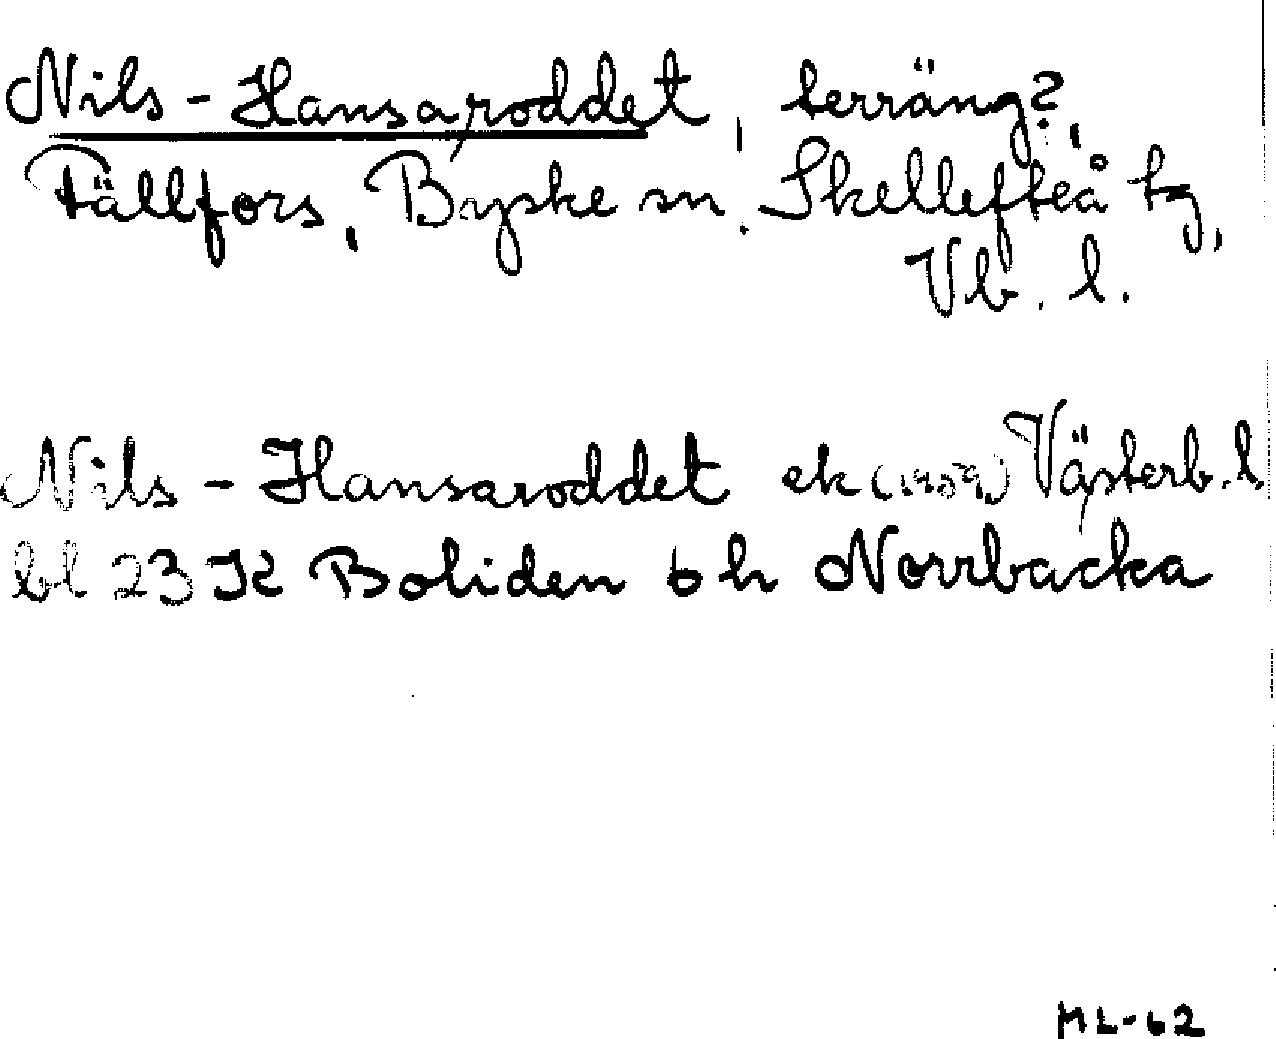 Nils-Hansaroddet, terräng?,
Fällfors, Byske sn, Skellefteå tg,
Vb. l.
Nils-Hansaroddet ek (1959) Västerb. l
bl 23 K Boliden 6 h Norrbacka
ML-62